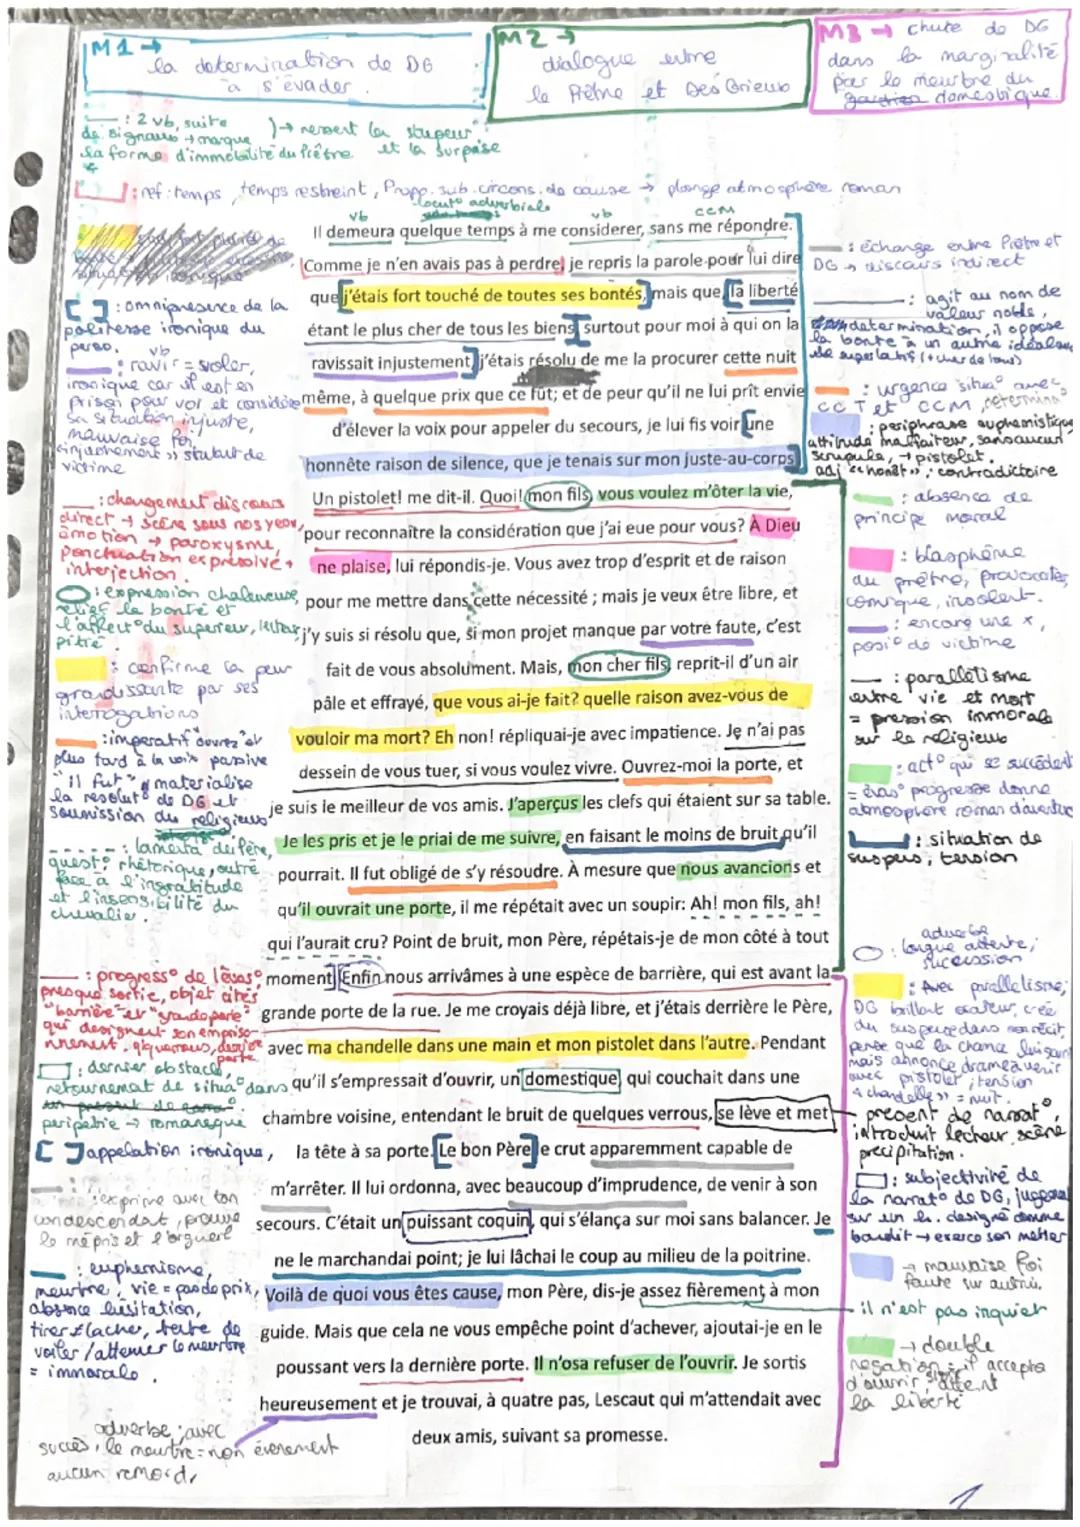 M1 →
la determination de DG
à s'évader.
M2 →
dialogue entre
le Prêtre et Des Grieux
M3 → chute de DG
dans la marginalité
par le meurtre du
domestique.
: 2 vb, suite
de signaux → marque
sa forme d'immobilité du Prêtre
→ ressent la stupeur
et la surprise
: ref : temps, temps restreint, Propo. sub. circons. de cause → plonge atmosphère roman
locut° adverbiale
vb vb CCM
Il demeura quelque temps à me considerer, sans me répondre.
Comme je n'en avais pas à perdre, je repris la parole pour lui dire
que j'étais fort touché de toutes ses bontés, mais que, la liberté
étant le plus cher de tous les biens, surtout pour moi à qui on la
ravissait injustement, j'étais résolu de me la procurer cette nuit
même, à quelque prix que ce fût; et de peur qu'il ne lui prît envie
d'élever la voix pour appeler du secours, je lui fis voir une
honnête raison de silence, que je tenais sur mon juste-au-corps.
Un pistolet! me dit-il. Quoi! mon fils, vous voulez m'ôter la vie,
pour reconnaître la considération que j'ai eue pour vous? À Dieu
ne plaise, lui répondis-je. Vous avez trop d'esprit et de raison
pour me mettre dans cette nécessité ; mais je veux être libre, et
j'y suis si résolu que, si mon projet manque par votre faute, c'est
fait de vous absolument. Mais, mon cher fils, reprit-il d'un air
pâle et effrayé, que vous ai-je fait? quelle raison avez-vous de
vouloir ma mort? Eh non! répliquai-je avec impatience. Je n'ai pas
dessein de vous tuer, si vous voulez vivre. Ouvrez-moi la porte, et
je suis le meilleur de vos amis. J'aperçus les clefs qui étaient sur sa table.
Je les pris et je le priai de me suivre, en faisant le moins de bruit qu'il
pourrait. Il fut obligé de s'y résoudre. À mesure que nous avancions et
qu'il ouvrait une porte, il me répétait avec un soupir: Ah! mon fils, ah!
qui l'aurait cru? Point de bruit, mon Père, répétais-je de mon côté à tout
moment. Enfin nous arrivâmes à une espèce de barrière, qui est avant la
grande porte de la rue. Je me croyais déjà libre, et j'étais derrière le Père,
avec ma chandelle dans une main et mon pistolet dans l'autre. Pendant
qu'il s'empressait d'ouvrir, un domestique, qui couchait dans une
chambre voisine, entendant le bruit de quelques verrous, se lève et met
la tête à sa porte. Le bon Père le crut apparemment capable de
m'arrêter. Il lui ordonna, avec beaucoup d'imprudence, de venir à son
secours. C'était un puissant coquin, qui s'élança sur moi sans balancer. Je
ne le marchandai point; je lui lâchai le coup au milieu de la poitrine.
Voilà de quoi vous êtes cause, mon Père, dis-je assez fièrement à mon
guide. Mais que cela ne vous empêche point d'achever, ajoutai-je en le
poussant vers la dernière porte. Il n'osa refuser de l'ouvrir. Je sortis
heureusement et je trouvai, à quatre pas, Lescaut qui m'attendait avec
deux amis, suivant sa promesse.
: omnipresence de la
politesse ironique du
perso.
vb
: ravir = voler,
ironique car il est en
prison pour vol et considère
sa situation injuste,
mauvaise foi,
"injustement" statut de
victime
: changement discours
direct → scène sous nos yeux,
émotion → paroxysme,
Ponctuation expressive +
interjection.
: expression chaleureuse,
relief la bonté et
l'affect° du superieur,
pitié.
: confirme la peur
grandissante par ses
interrogations
: imperatif "ouvrez" et
plus tard à la voix passive
"il fut" materialise
la resolut° de DG et
soumission du religieux
: lamenta° du Père,
quest° rhétorique, outré
face à l'ingratitude
et l'insensibilité du
chevalier.
: progress° de l'évas°
presque sortie, objet cités
"barrière" et "grande porte"
qui designent son emprison-
nement.
: dernier obstacle,
retournement de situa° dans
peripetie → romanesque
appelation ironique,
: exprime avec ton
condescendant, prouve
le mépris et l'orgueil
: euphemisme,
meurtre, vie = pas de prix,
absence hésitation,
tirer ≠ lacher, tente de
voiler / attenuer le meurtre
= immorale.
adverbe ; avec
succès, le meurtre = non évenement
aucun remord,
: échange entre Prêtre et
DG → discours indirect
: agit au nom de
valeur noble,
determination, il oppose
la bonté à un autre idéal
superlatif (+ cher de tous)
: urgence situa° avec
CCT et CCM, determiné
: periphrase euphemistique
attitude malfaiteur, sans aucun
scrupule, → pistolet.
adj "honêt" : contradictoire
: absence de
principe moral
: blasphème
du prêtre, provocateur,
comique, insolent.
: encore une x,
posi° de victime
: parallélisme
entre vie et mort
= pression immorale
sur le religieux
: act° qui se succèdent
= évas° progresse donne
atmosphere roman d'aventure
: situation de
suspens, tension
adverbe
: longue attente,
succession
: Avec parallelisme,
DG brillant orateur, crée
du suspense dans son récit,
pense que la chance lui sourit
mais annonce drame à venir
avec pistolet, tension
"chandelle" = nuit.
present de narrat°,
introduit lecteur scène
précipitation.
: subjectivité de
la narrat° de DG, jugement
sur un h. designé comme
bandit → exerce son metier
→ mauvaise foi
faute sur autrui.
il n'est pas inquiet
→ double
negation : il accepte
d'ouvrir, atteint
la liberté
1